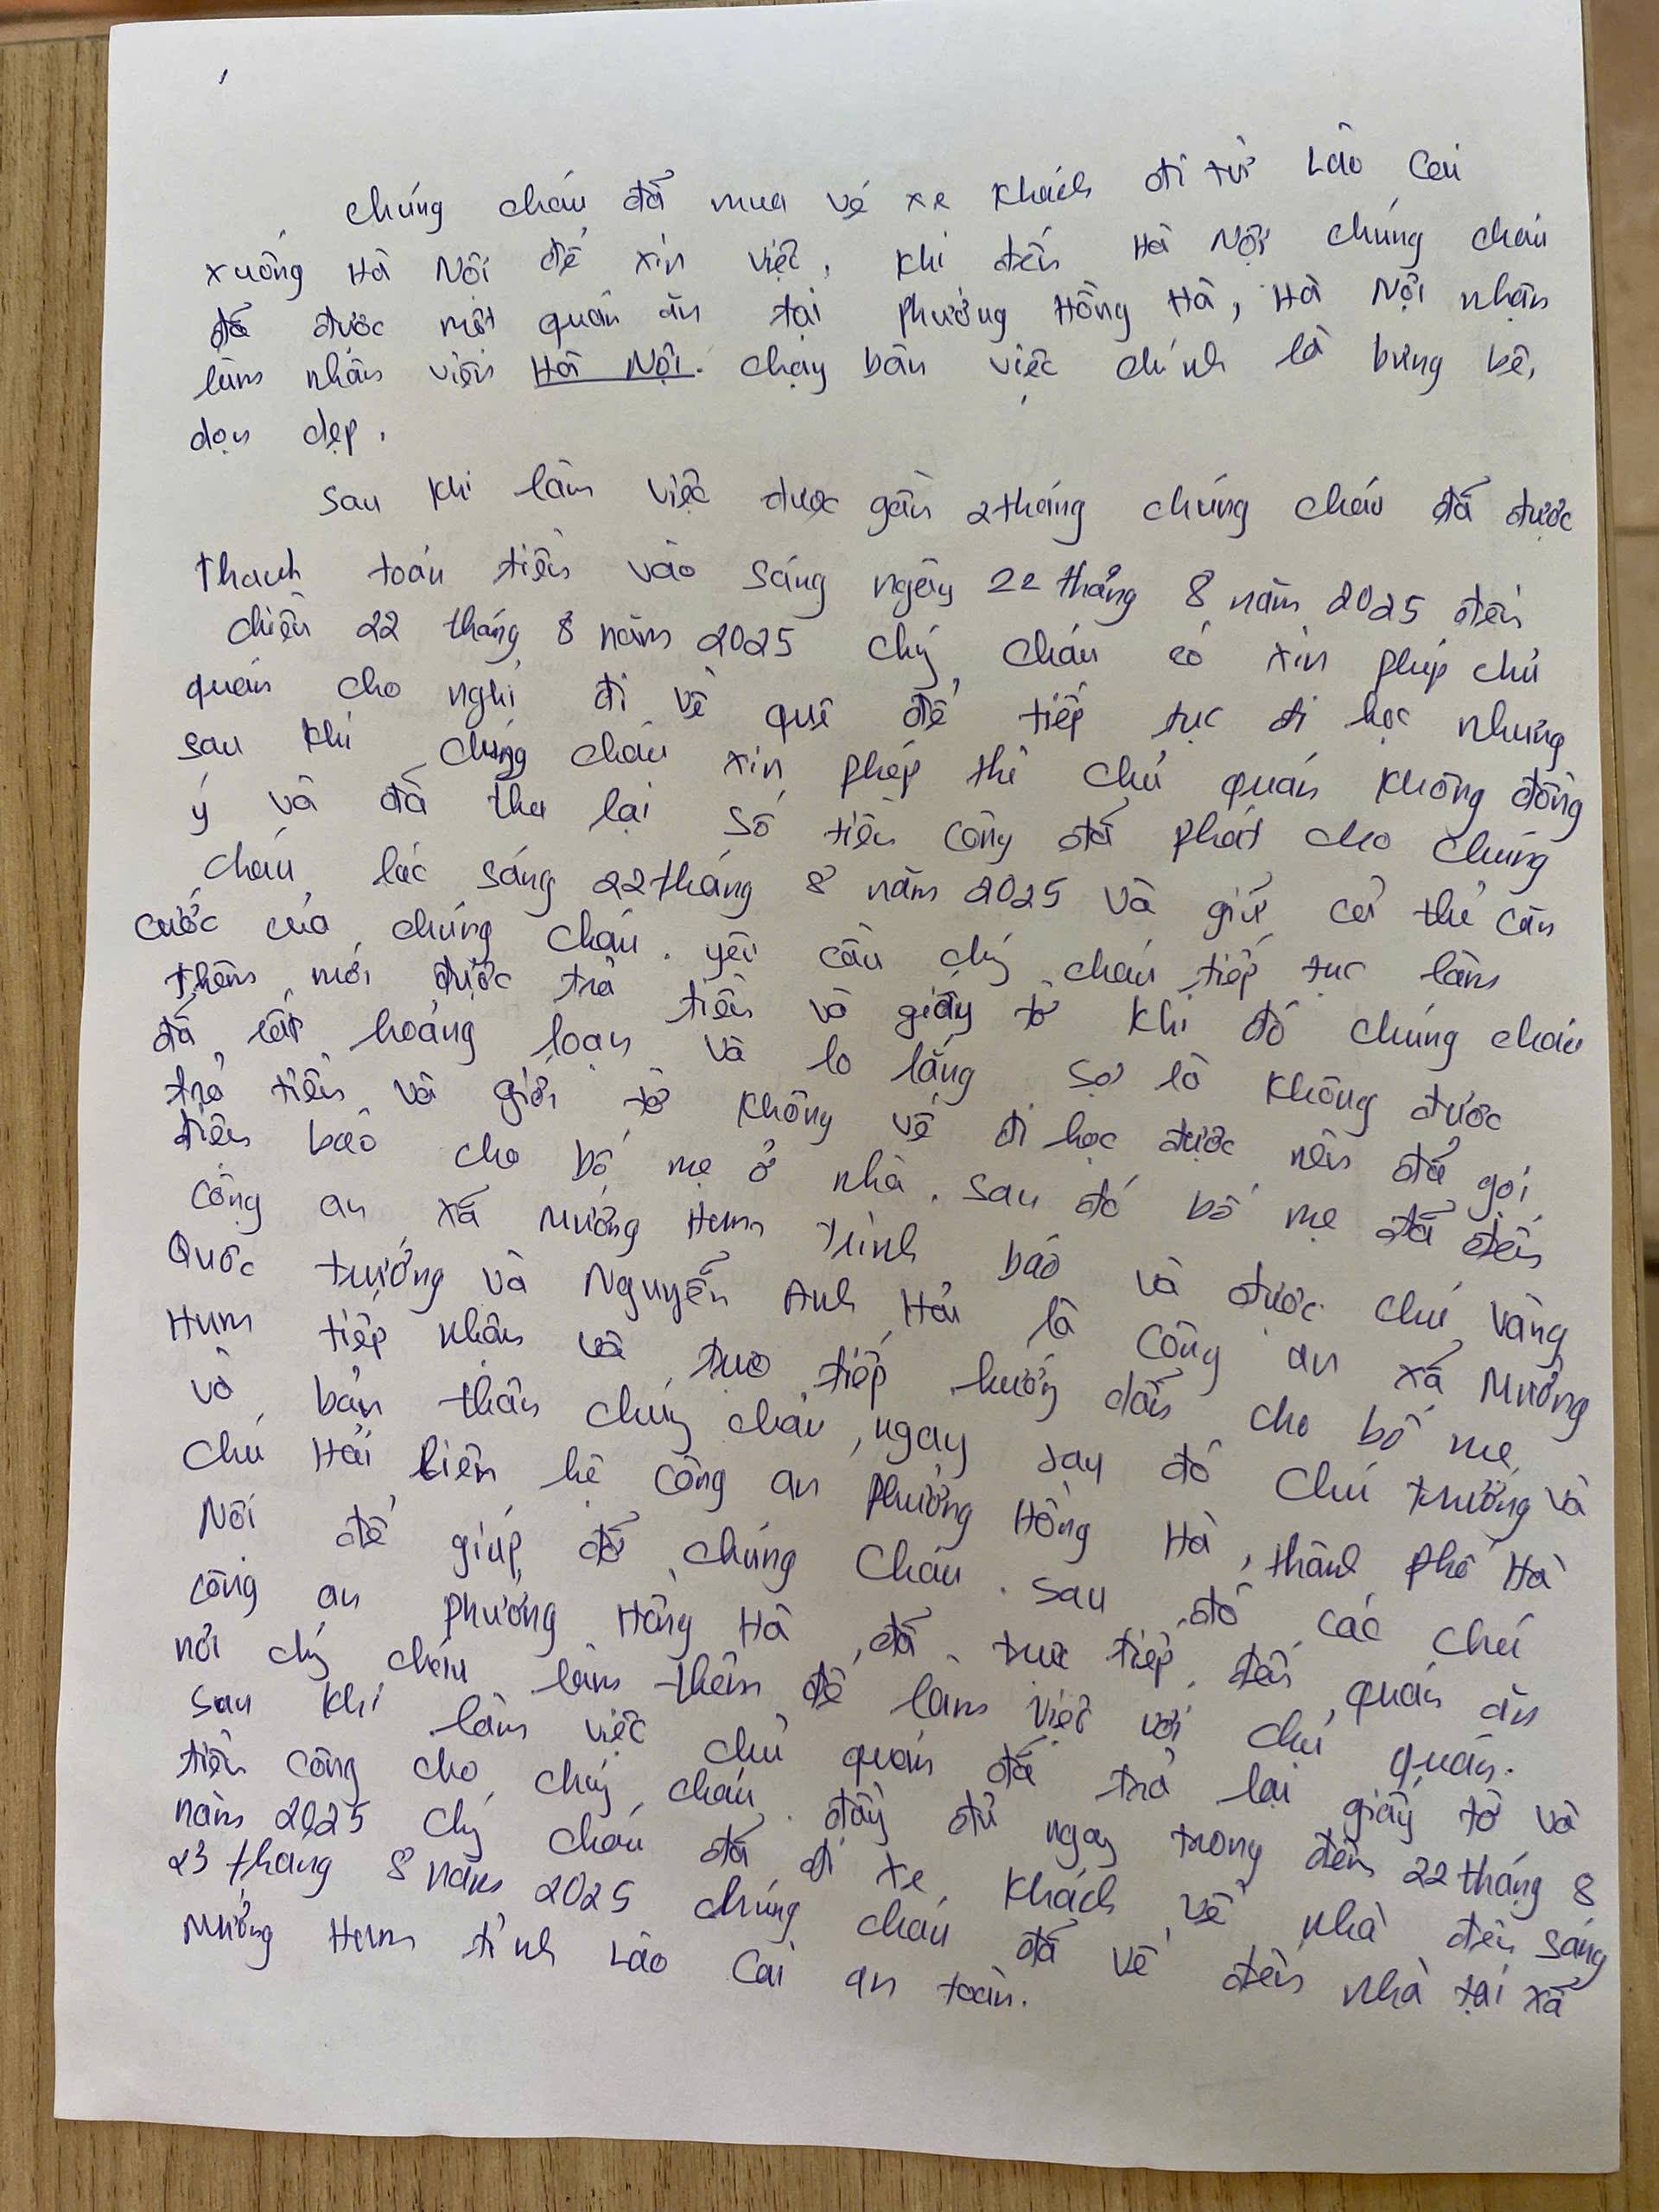 chúng cháu đã mua vé xe khách đi từ Lào Cai
xuống Hà Nội để xin việc, khi đến Hà Nội chúng cháu
đã được một quán ăn tại phường Hồng Hà, Hà Nội nhận
làm nhân viên Hà Nội. chạy bàn việc chính là bưng bê,
dọn dẹp.
sau khi làm việc được gần 2 tháng chúng cháu đã được
thanh toán tiền vào sáng ngày 22 tháng 8 năm 2025 đến
chiều 22 tháng 8 năm 2025 chg cháu có xin phép chủ
quán cho nghỉ đi về quê để tiếp tục đi học nhưng
sau khi chúng cháu xin phép thì chủ quán không đồng
ý và đã thu lại số tiền công đã phát cho chúng
cháu lúc sáng 22 tháng 8 năm 2025 và giữ cả thẻ căn
cước của chúng cháu. yêu cầu chg cháu tiếp tục làm
thêm mới được trả tiền và giấy tờ khi đó chúng cháu
đã rất hoảng loạn và lo lắng sợ là không được
trả tiền và giấy tờ không về đi học được nên đã gọi
điện báo cho bố mẹ ở nhà. sau đó bố mẹ đã đến
công an xã Mường Hum trình báo và được chú Vàng
Quốc trưởng và Nguyễn Anh Hải là công an xã Mường
Hum tiếp nhận và trực tiếp hướng dẫn cho bố mẹ
và bản thân chúng cháu, ngay sau đó chú trưởng và
chú Hải liên hệ công an phường Hồng Hà, thành phố Hà
Nội để giúp đỡ chúng cháu. sau đó các chú
công an phường Hồng Hà đã trực tiếp đến quán ăn
nơi chg cháu làm thêm để làm việc với chủ quán.
sau khi làm việc chủ quán đã trả lại giấy tờ và
tiền công cho chúng cháu đầy đủ ngay trong đêm 22 tháng 8
năm 2025 chg cháu đã đi xe khách về nhà đến sáng
23 tháng 8 năm 2025 chúng cháu đã về đến nhà tại xã
Mường Hum tỉnh Lào Cai an toàn.